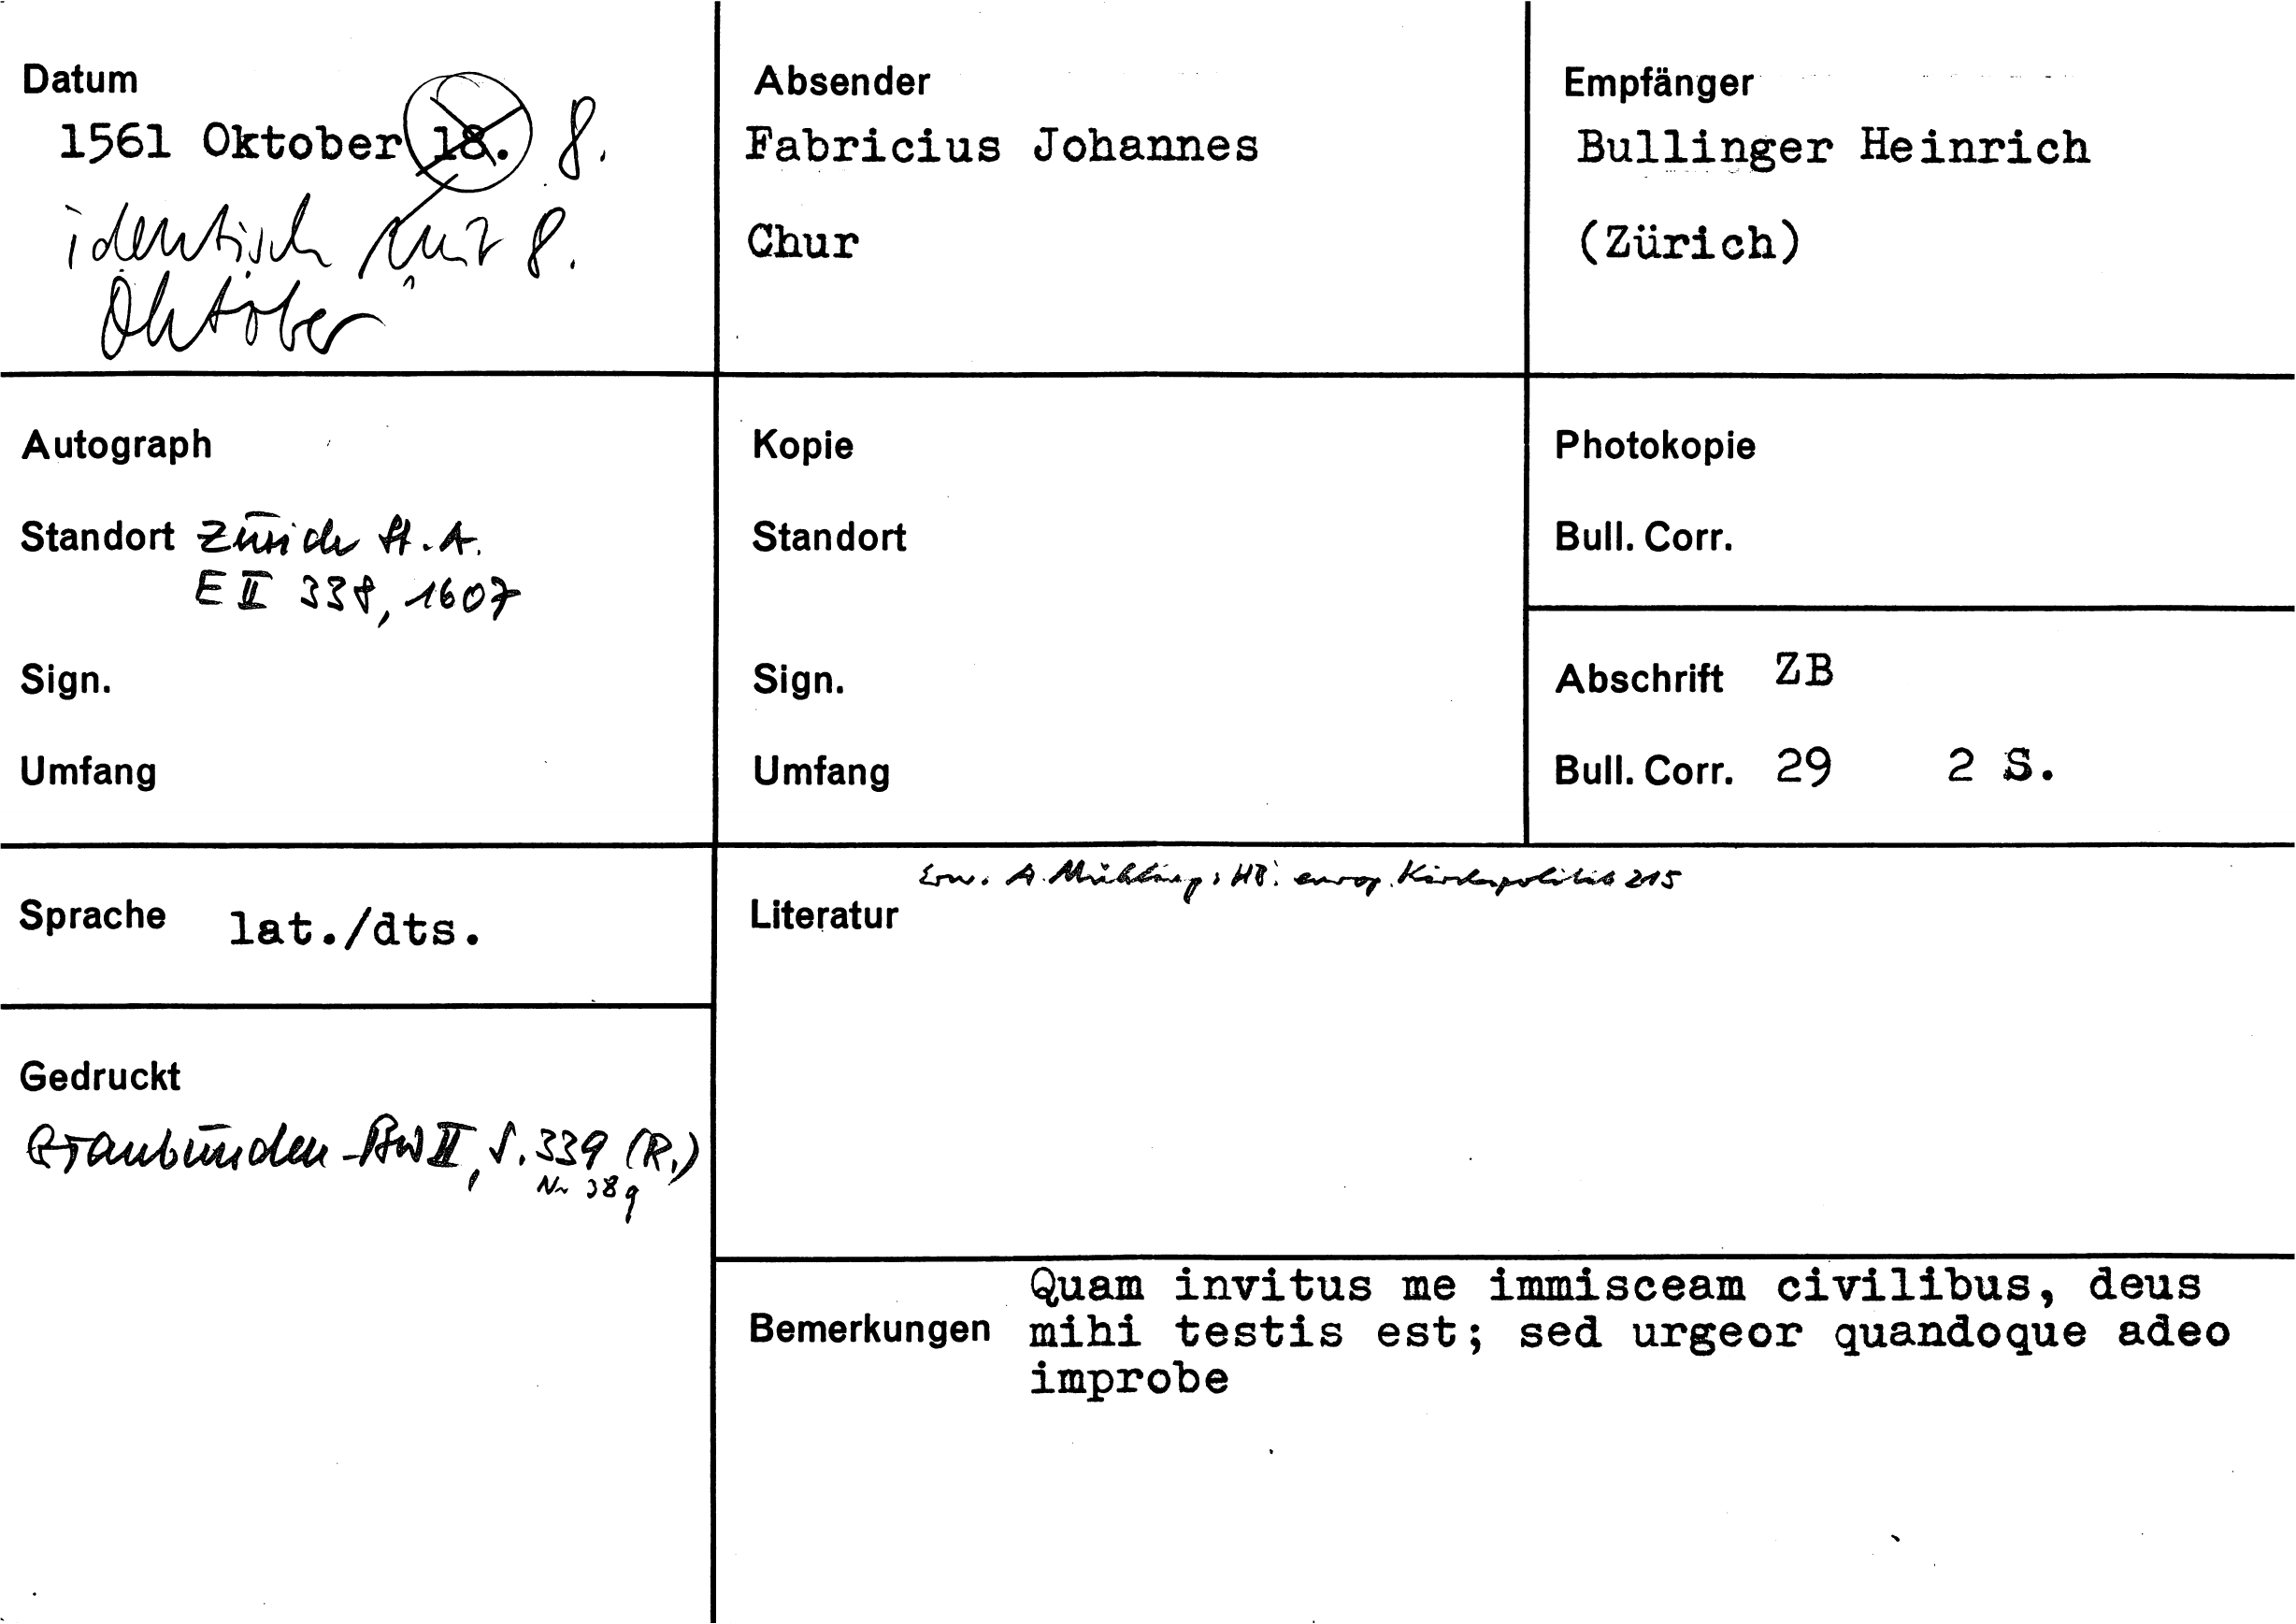 Datum
1561 Oktober 18. 8.
identisch mit 8.
Oktober
Absender
Fabricius Johannes
Chur
Empfänger
Bullinger Heinrich
(Zürich)
Autograph
Standort Zürich StA.
E II 338, 1607
Sign.
Umfang
Kopie
Standort
Sign.
Umfang
Photokopie
Bull. Corr.
Abschrift ZB
Bull. Corr. 29 2 S.
Sprache lat./dts.
Gedruckt
Graubünden-BW II, S. 339 (R.)
Nr 389
Erw. A. Mühling: HB. europ. Kirchenpolitik 215
Literatur
Bemerkungen
Quam invitus me immisceam civilibus, deus
mihi testis est; sed urgeor quandoque adeo
improbe